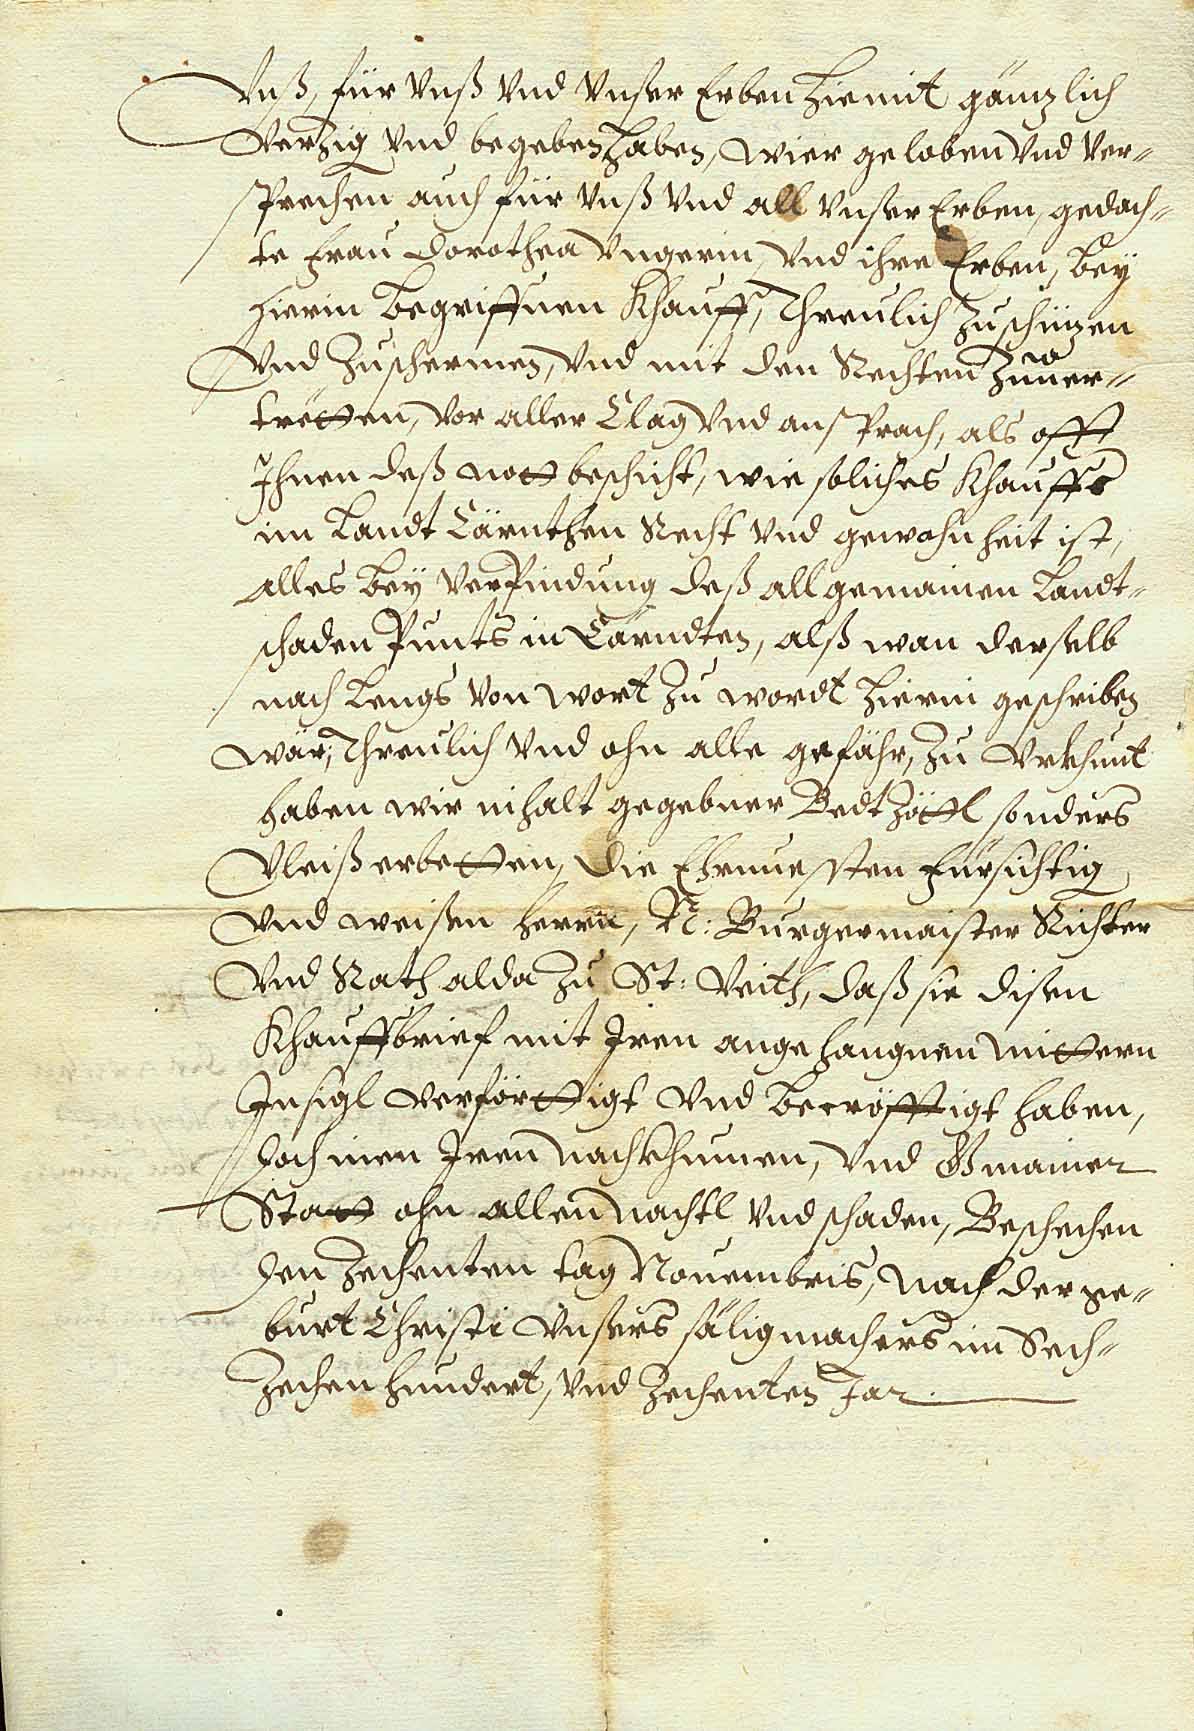 Vnß, für Vnß Vnd Vnßer Erben hiemit gänzlich
Verzig Vnd begeben haben, wier geloben Vnd Ver-
sprechen auch für Vnß Vnd all Vnßer Erben, gedach-
te Frau Dorothea Vngerin, Vnd ihre Erben, bey
hierin begriffnen Khauff, Threulich zuschüzen
Vnd zuschermen, Vnd mit den Rechten zuuer-
tretten, Vor aller Clag Vnd ansprach, als offt
Ihnen deß nott beschicht, wie soliches Khauffs
im Landt Cärnthen Recht Vnd gewohnheit ist,
alles bey Verpindung deß allgemainen Landt-
schaden Punts in Cärndten, alß wan derselb
nach lengs Von wort zu wordt hierin geschriben
wär, Threulich Vnd ohn alle gefähr, zu Vrkhunt
haben wir inhalt gegebner Bedtzöttl sonders
Vleiß erbetten, die Ehrnuessten Fürsichtig
Vnd weisen herrn, N: Burgermaister Richter
Vnd Rath alda zu St: Veith, daß sie disen
Khauffbrief mit Iren angehangnen mittern
Insigl Verförttigt Vnd becröfftigt haben,
doch inen Iren nachkhumen, Vnd Gmainer
Statt ohn allen nachtl Vnd schaden, Beschechen
den zechenten tag Nouembris, nach der ge-
burt Christi Vnsers säligmachers im Sech-
zechen hundert, Vnd zechenten Jar.